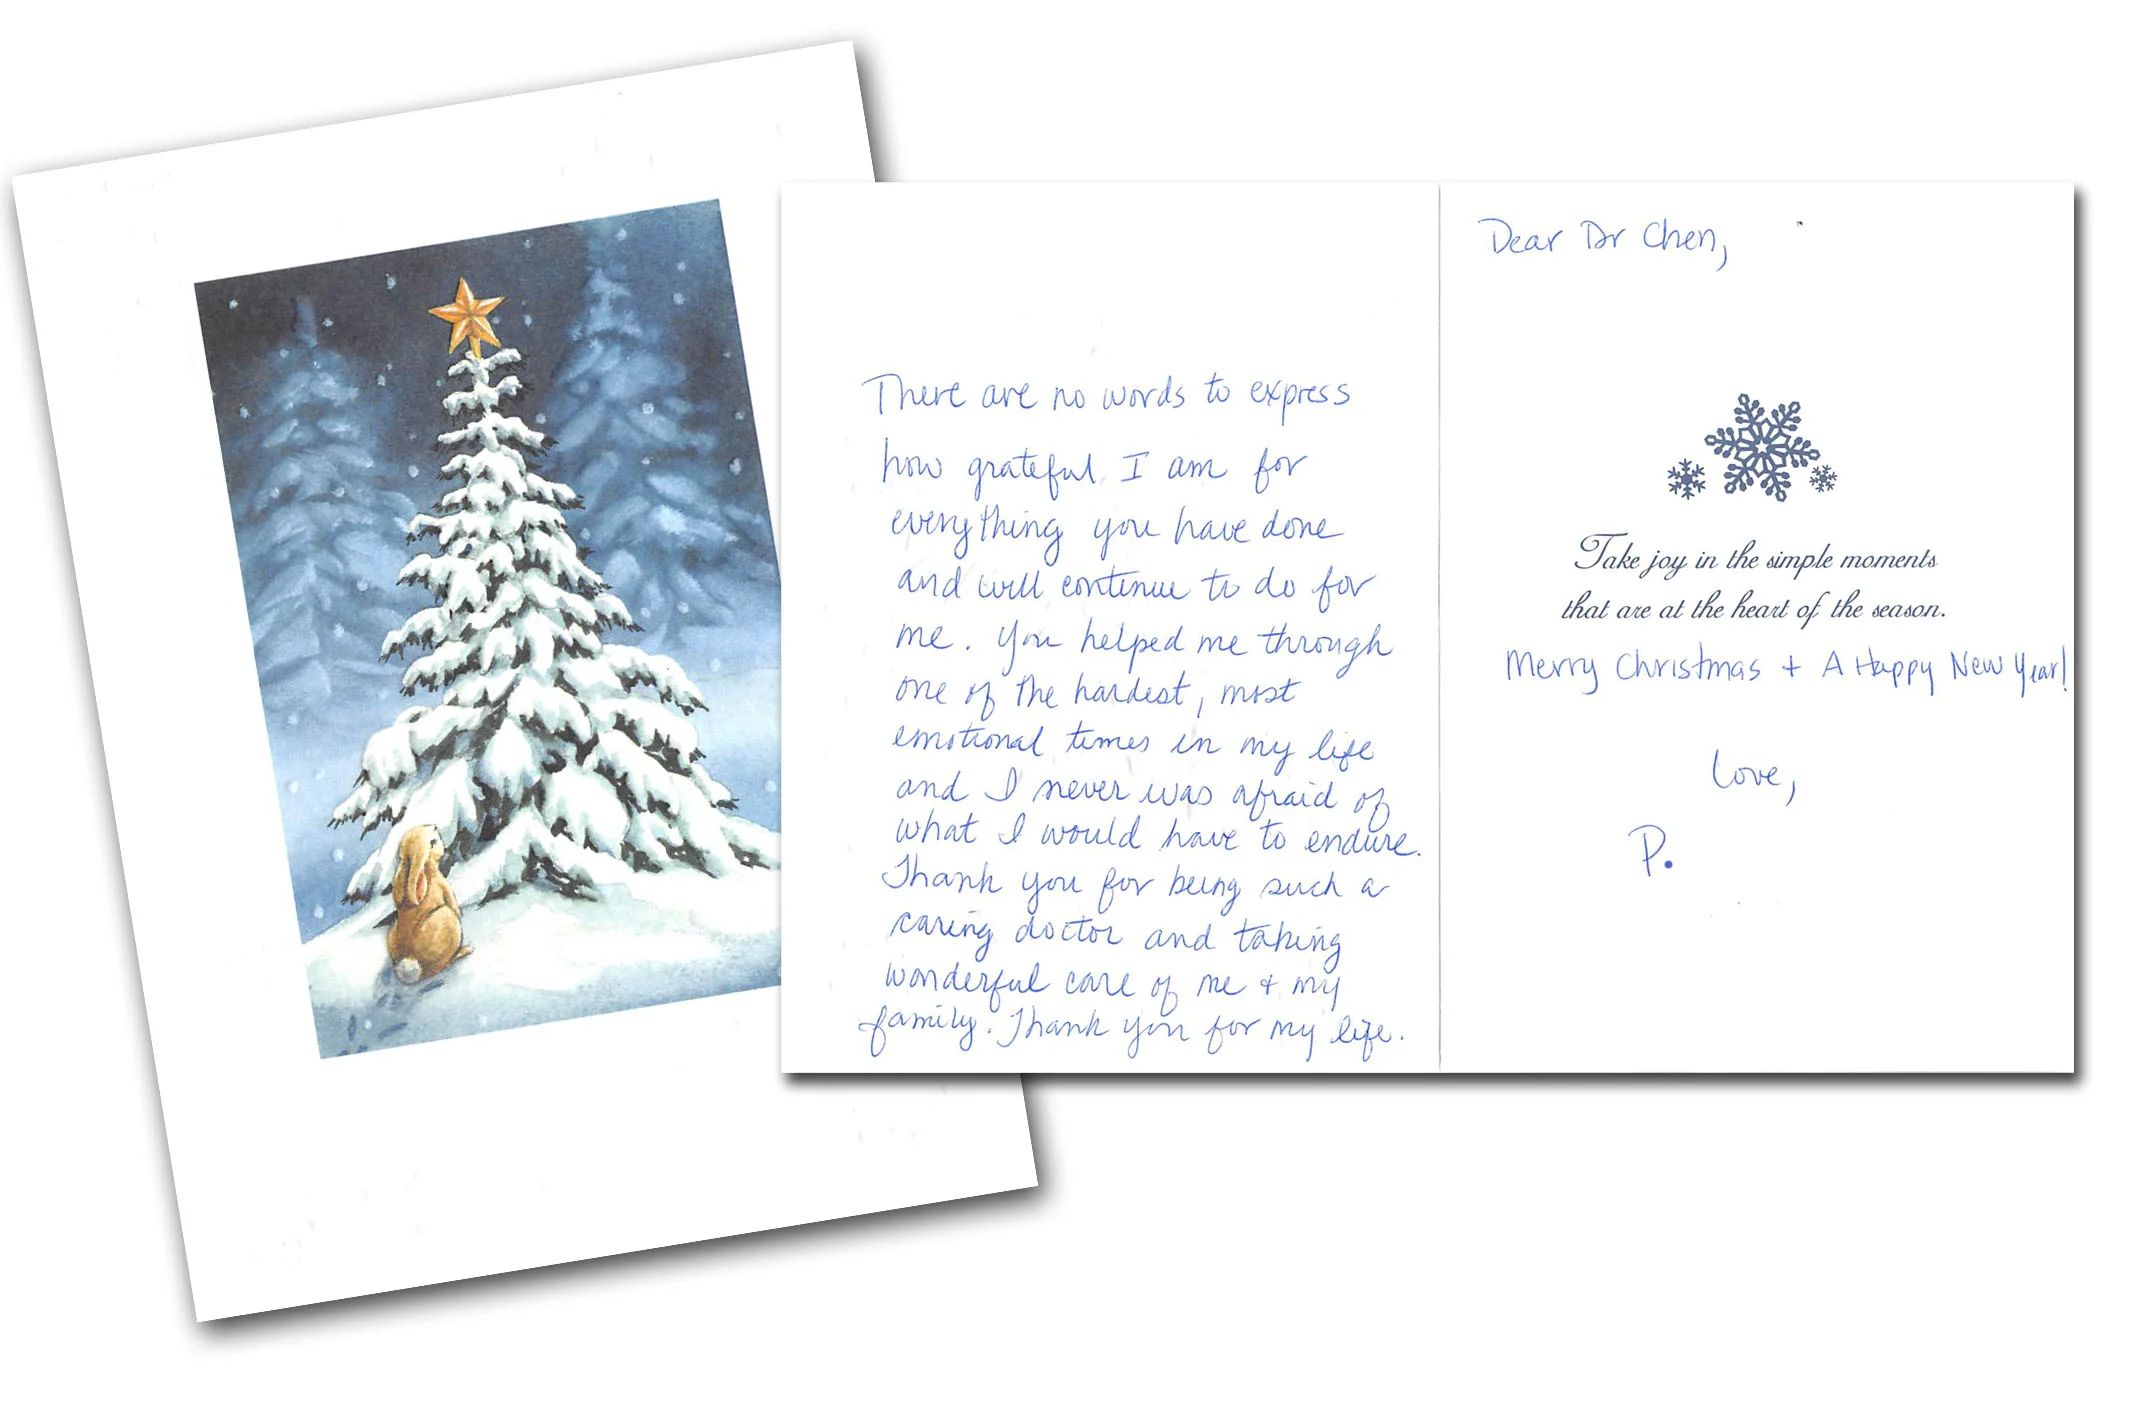 There are no words to express
how grateful I am for
everything you have done
and will continue to do for
me. You helped me through
one of the hardest, most
emotional times in my life
and I never was afraid of
what I would have to endure.
Thank you for being such a
caring doctor and taking
wonderful care of me + my
family. Thank you for my life.
Dear Dr Chen,
Take joy in the simple moments
that are at the heart of the season.
Merry Christmas + A Happy New Year!
Love,
P.